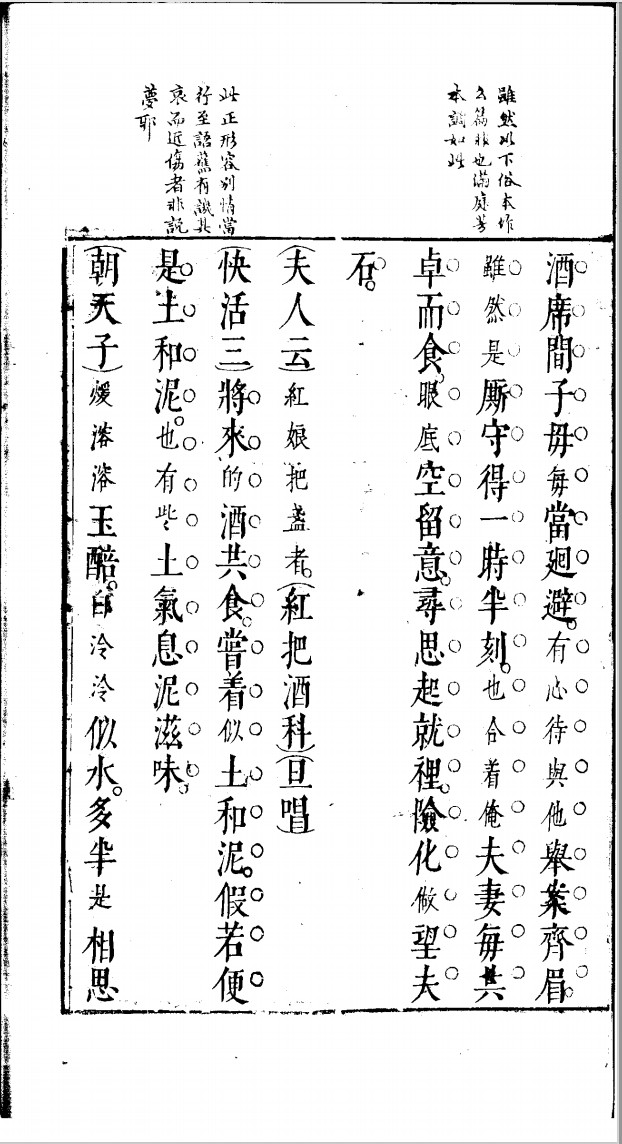 雖然以下俗本作
么篇非也滿庭芳
本調如此
此正形容別情當
行至語舊有譏其
哀而近傷者非說
夢耶
酒席間子母每當廻避。有心待與他舉案齊眉。
雖然是厮守得一時半刻。也合着俺夫妻每共
卓而食。眼底空留意。尋思起就裡。險化做望夫
石。
(夫人云)紅娘把盞者。(紅把酒科)(旦唱)
(快活三)將來的酒共食。嘗着似土和泥。假若便
是土和泥。也有些土氣息泥滋味。
(朝天子)煖溶溶玉醅。白泠泠似水。多半是相思